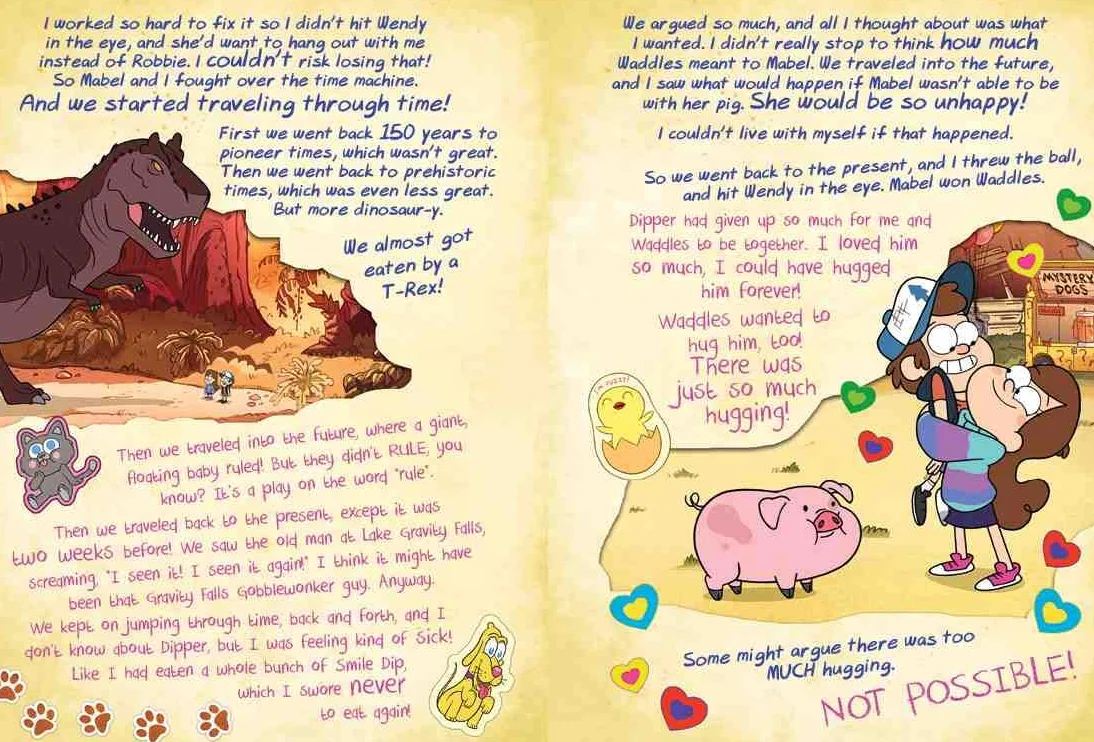 I worked so hard to fix it so I didn't hit Wendy
in the eye, and she'd want to hang out with me
instead of Robbie. I couldn't risk losing that!
So Mabel and I fought over the time machine.
And we started traveling through time!
First we went back 150 years to
pioneer times, which wasn't great.
Then we went back to prehistoric
times, which was even less great.
But more dinosaur-y.
We almost got
eaten by a
T-Rex!
Then we traveled into the future, where a giant,
floating baby ruled! But they didn't RULE, you
know? It's a play on the word "rule".
Then we traveled back to the present, except it was
two weeks before! We saw the old man at Lake Gravity Falls,
screaming, "I seen it! I seen it again!" I think it might have
been that Gravity Falls Gobblewonker guy. Anyway.
We kept on jumping through time, back and forth, and I
don't know about Dipper, but I was feeling kind of sick!
Like I had eaten a whole bunch of Smile Dip,
which I swore never
to eat again!
We argued so much, and all I thought about was what
I wanted. I didn't really stop to think how much
Waddles meant to Mabel. We traveled into the future,
and I saw what would happen if Mabel wasn't able to be
with her pig. She would be so unhappy!
I couldn't live with myself if that happened.
So we went back to the present, and I threw the ball,
and hit Wendy in the eye. Mabel won Waddles.
Dipper had given up so much for me and
Waddles to be together. I loved him
so much, I could have hugged
him forever!
Waddles wanted to
hug him, too!
There was
just so much
hugging!
I'M FUZZY!
MYSTERY
DOGS
Some might argue there was too
MUCH hugging.
NOT POSSIBLE!